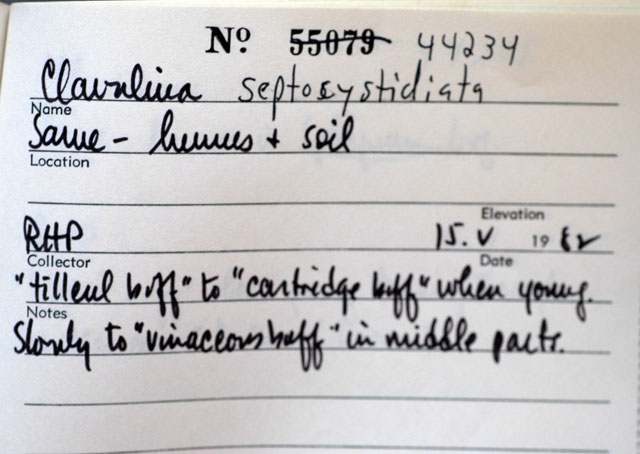 Nº 55079 44234
Clavulina septocystidiata
Name
Same - humus + soil
Location
Elevation
RHP 15. V 19 82
Collector Date
"tilleul buff" to "cartridge buff" when young.
Notes
Slowly to "vinaceous buff" in middle parts.